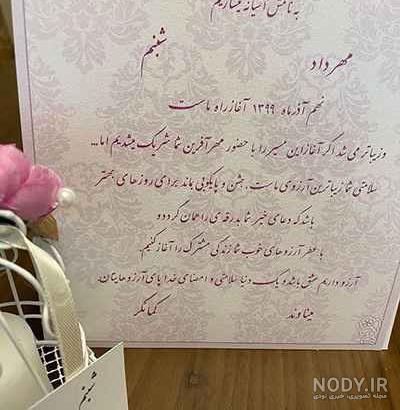 به نامش آشیانه میسازیم
مهرداد
شبنم
نهم آذرماه ۱۳۹۹ آغاز راه ماست
و زیباتر می شد اگر آغاز این مسیر را با حضور مهرآفرین شما شریک میشدیم اما...
سلامتی شما زیباترین آرزوی ماست. جشن و پایکوبی بماند برای روزهای بهتر
باشد که دعای خیر شما بدرقه ی راهمان گردد و
با عطر آرزوهای خوب شما زندگی مشترک را آغاز کنیم.
آرزو داریم عشق باشد و یک دنیا سلامتی و امضای خدا پای آرزوهایتان.
میناوند
کمانگر
شبنم
NODY.IR
مجله تصویری، خبری نودی